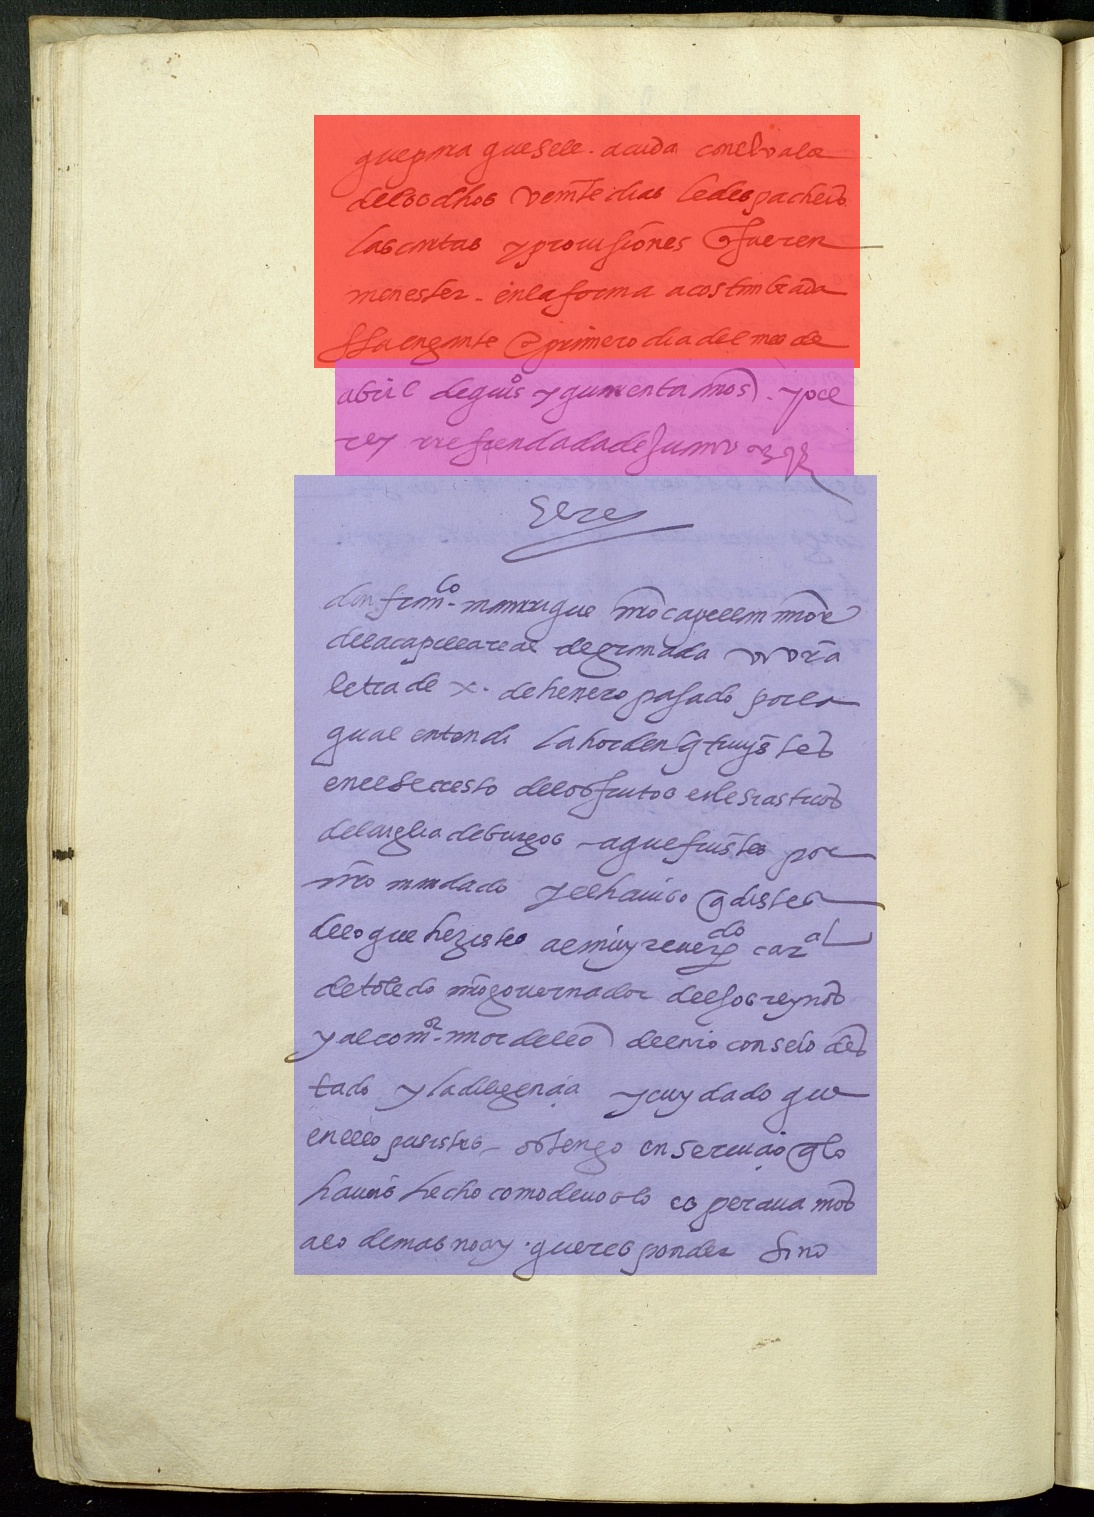 que para que se le acuda con el vala
de los dhos veinte dias le despacheis
las cartas y provisiones q fueren
menester en la forma acostunbrada
ffa en gante a primero dia del mes de
abril de qui°s y quarenta años yo el
rey rrefrendada de
El Rey
don franco manrrique nro capellan mor
de la capilla real de granada vi vra
letra de x de henero pasado por la
qual entendi la horden q tuvistes
en el secresto de los frutos eclesiasticos
de la iglia de burgos a que fuistes por
nro mandado y el haviso q distes
de lo que hezistes al muy reverdo caral
de toledo nro governador desos reynos
y al comor mor de leon del nro consejo des
tado y la diligencia y cuydado que
en ello pusistes os tengo en servicio q lo
haveis hecho como de vos lo esperavamos
a lo demas no ay que responder sino